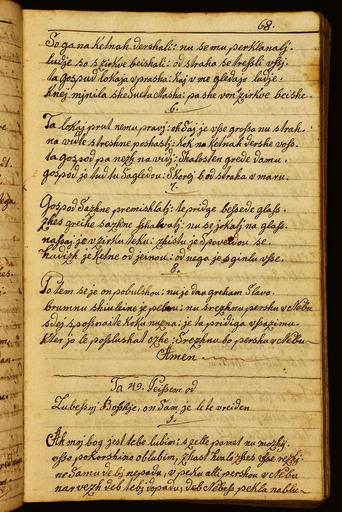 68.
So ga na ketnah dershali: nu se mu perklanali.
ludje so s' zirkve beishali: od straha se tresli vsi.
ta gospud lokaja vprasha: kaj v me gledajo ludje.
Knej mjnila she sveta Masha: pa she von zirkve beishe.
6.
Ta lokaj prut nemu pravj: ohdaj je vse grossnu strah.
na vidte streshne poshasti: kok na ketnah grede voss.
ta gospod pa nezh na vidj: Shalosten grede damu.
gospod je tudi tu sagledou: skorej b' od straha v maru.
7.
Gospod sazhne premishlatj: te pridge bessede glass.
zhes greihe sazhne shhaluatj: nu se jokatj na glass.
nassaj je v zirku teku: zhistu je spovedou se.
hudizh je ketne od jeinou: od nega je sginlu vsse.
8.
Potem se je on pobulshou: nu je dau grekam slavo.
brumnu shiuleine je pelou: nu srezhnu pershu v Nebu
sdej spossnaite koku nuzna: je ta pridiga vsazimu.
kter jo le posslushal ozhe: srezhnu bo pershu v Nebu
Amen
Ta 49. Peissem od
Lubesnj Boshje, on sam je le te vreiden
1.
Ah moj bog jest tebe lubim: s zelle pamet nu mozhj.
vsso pokorshino oblubim; zhast hvalo zhes vsse rezhj
ne samu de bj nepadu, v peku alli pershou v Nebu
nar vezh deb tebj dopadu; deb Nebess pekla na blu